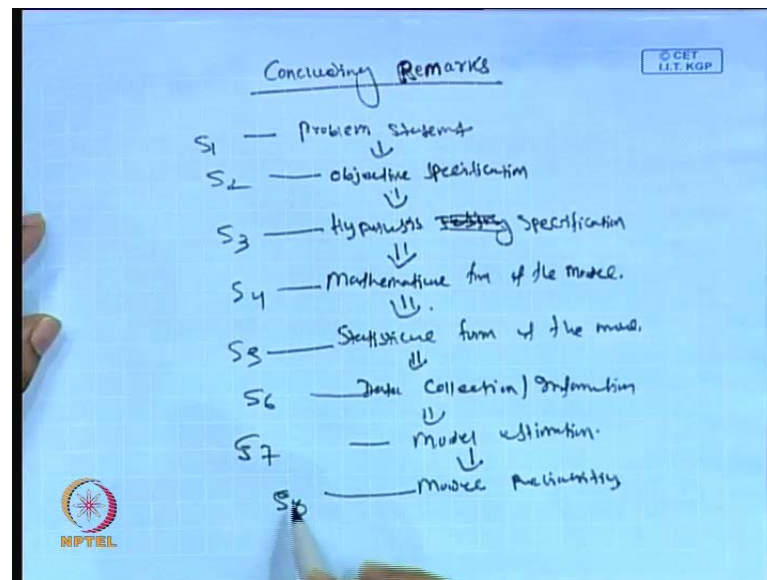 Concluding Remarks
© CET
I.I.T. KGP
S1 — Problem Statement
S2 — Objective Specification
S3 — Hypothesis Specification
S4 — Mathematical form of the model.
S5 — Statistical form of the model.
S6 — Data Collection / Information
S7 — Model estimation.
S8 — Model Reliability
NPTEL